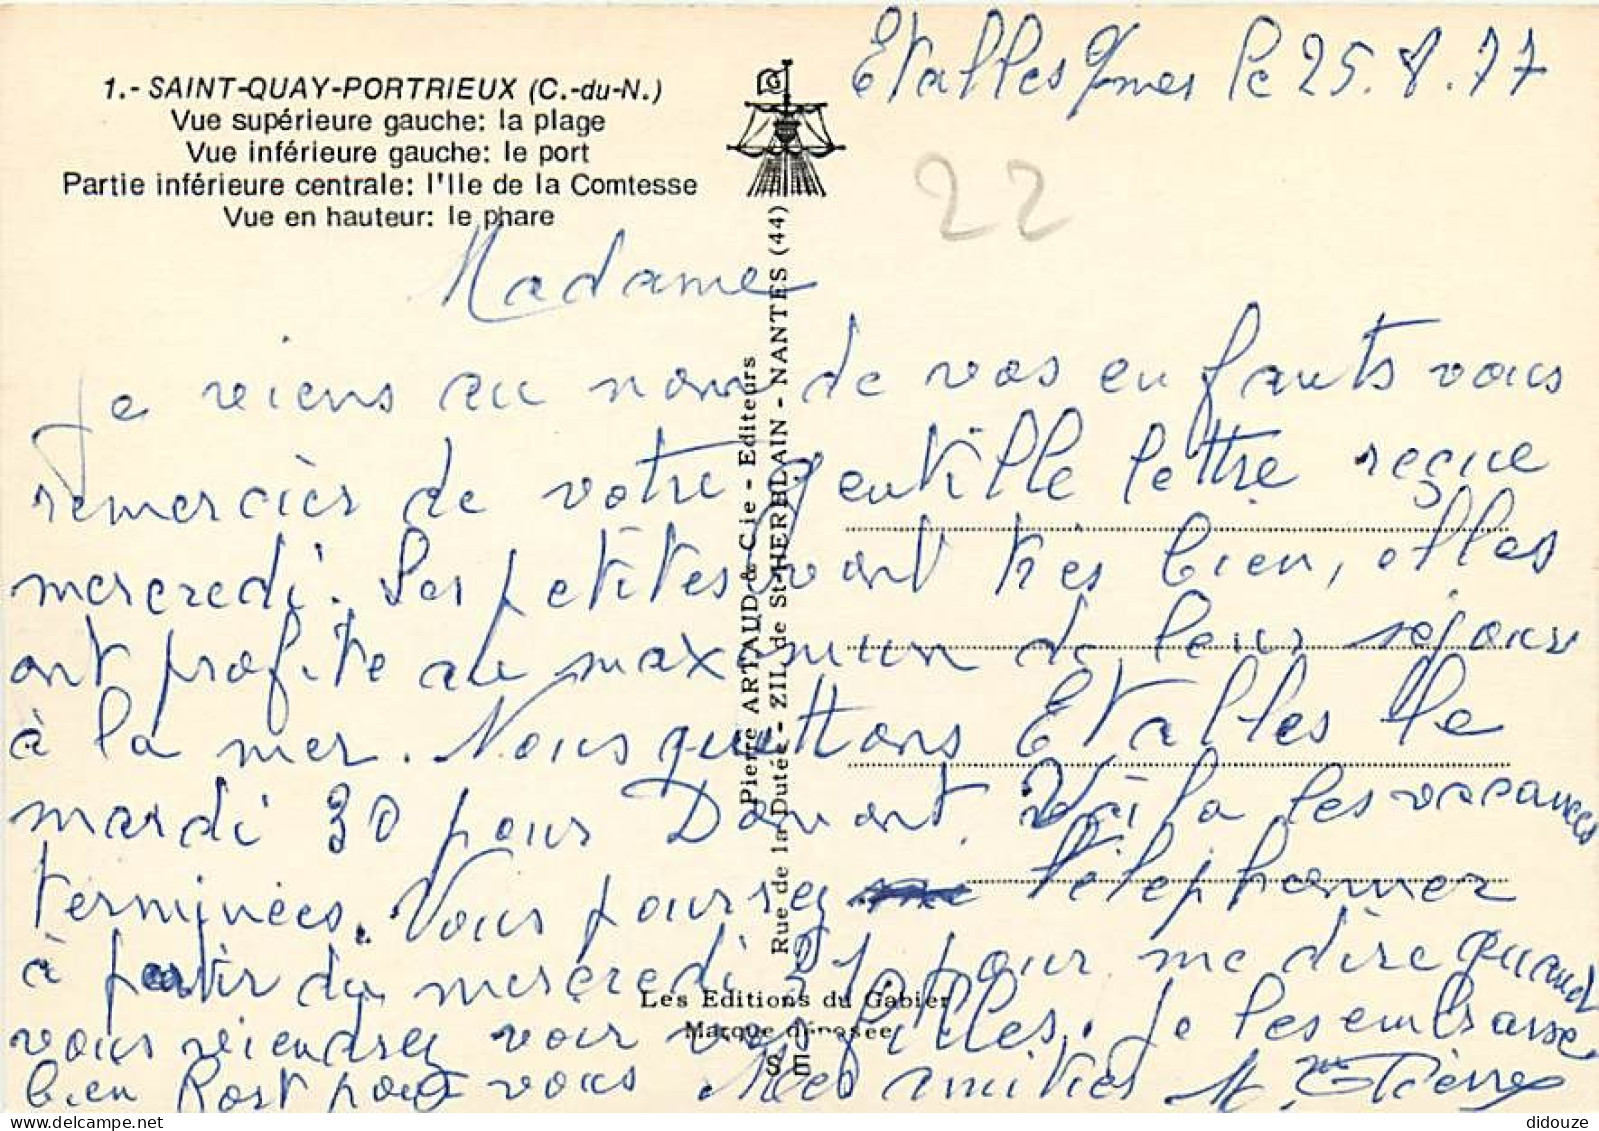 Etalles s/mer le 25.8.77
1.- SAINT-QUAY-PORTRIEUX (C.-du-N.)
Vue supérieure gauche: la plage
Vue inférieure gauche: le port
Partie inférieure centrale: l'Ile de la Comtesse
Vue en hauteur: le phare
22
Madame
Je viens au nom de vos enfants vous
remercier de votre gentille lettre reçue
mercredi. Les petites vont très bien, elles
ont profite au maximum de leur séjour
à la mer. Nous quittons Etalles le
mardi 30 pour Domont. Voila les vacances
terminées. Vous pourrez téléphonner
à partir du mercredi 31 pour me dire quand
vous viendrez voir vos filles. Je les embrasse
bien fort pour vous Mes amities M. me
Pierre ARTAUD & Cie - Editeurs
Rue de la Dutée - ZIL de St-HERBLAIN - NANTES (44)
Les Editions du Gabier
Marque déposée
didouze